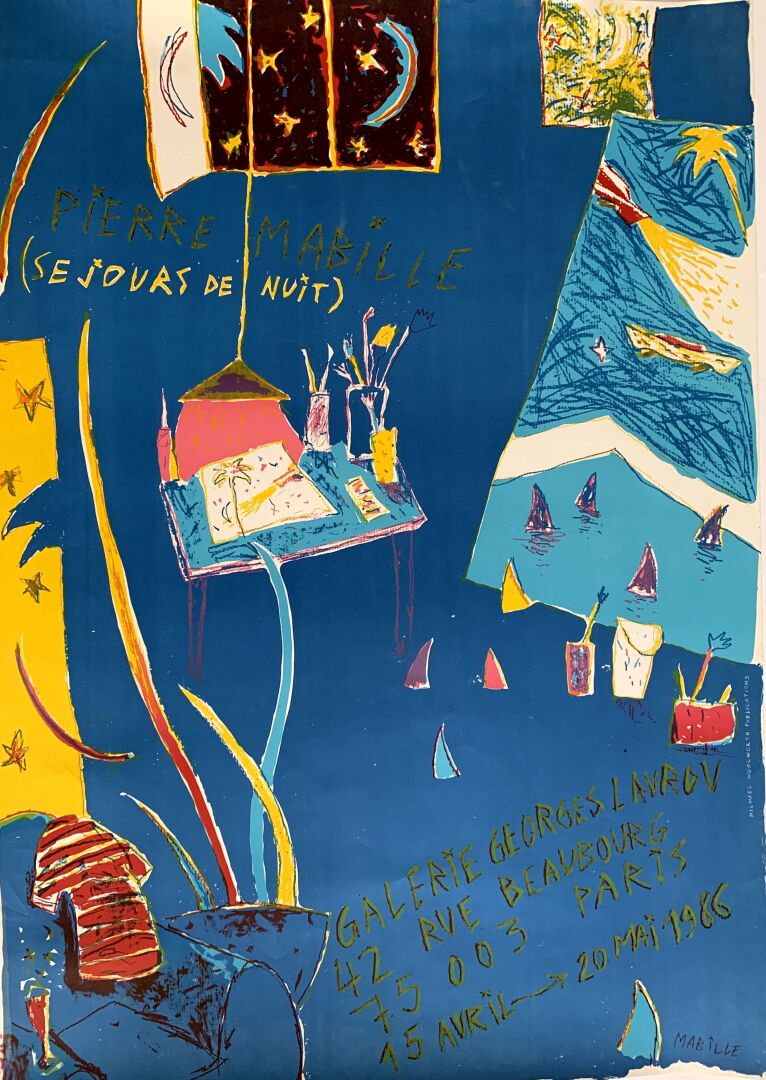 PIERRE MABILLE
(SEJOURS DE NUIT)
GALERIE GEORGES LAVROV
42 RUE BEAUBOURG
75 003 PARIS
15 AVRIL → 20 MAI 1986
MABILLE
MICHAEL WOOLWORTH PUBLICATIONS